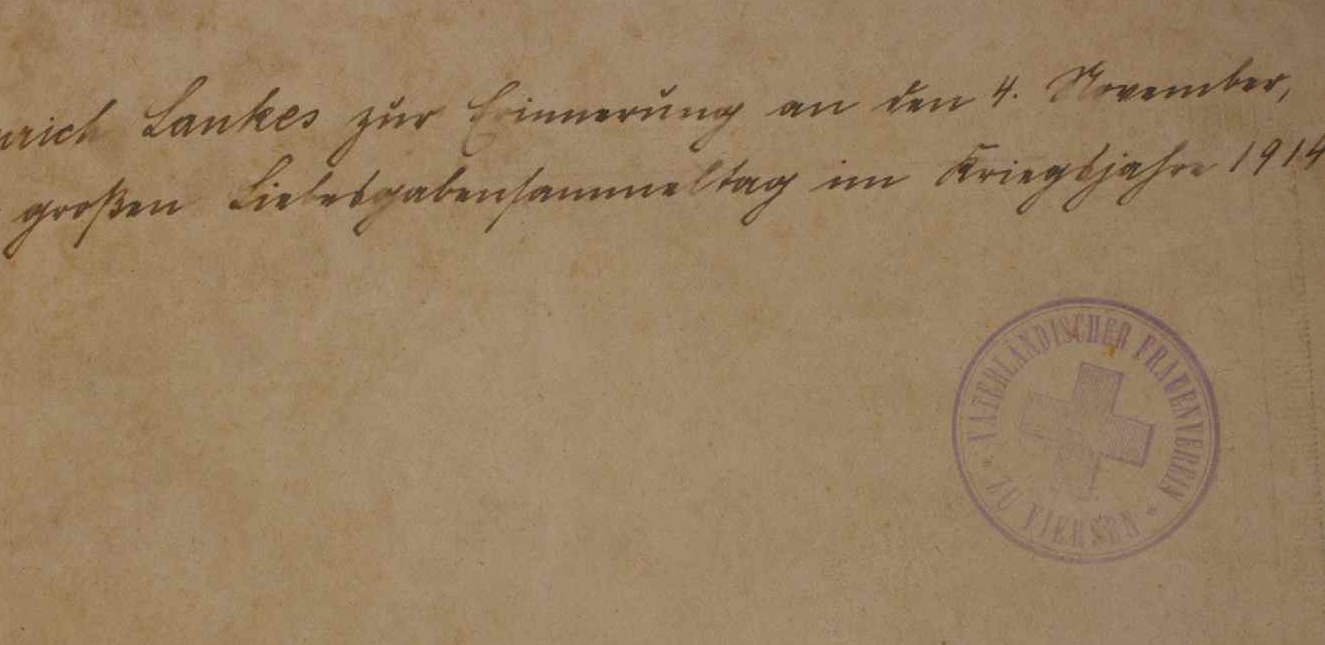 nrich Lankes zur Erinnerung an den 4. November,
großen Liebesgabensammeltag im Kriegsjahre 1914
VATERLÄNDISCHER FRAUENVEREIN
* ZU VIERSEN *